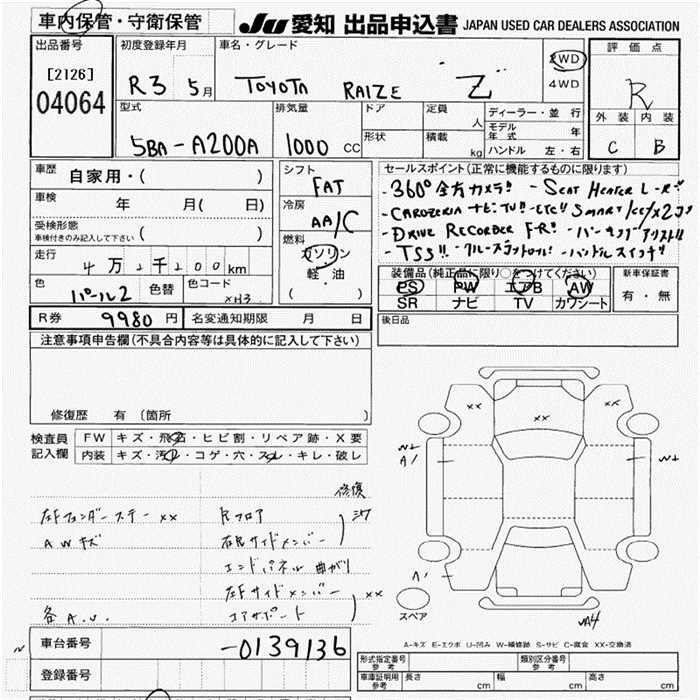 車内保管・守衛保管
JU 愛知 出品申込書 JAPAN USED CAR DEALERS ASSOCIATION
出品番号
[2126]
04064
初度登録年月
R3 5月
車名・グレード
TOYOTA RAIZE "Z"
2WD
4WD
評価点
R
外装 内装
C B
型式
5BA-A200A
排気量
1000 CC
ドア
形状
定員
人
積載
kg
ディーラー・並行
モデル年式 年
ハンドル 左・右
車歴
自家用・( )
車検
年 月( 日)
受検形態
車検付きのみ記入して下さい ( )
走行
4万2千200km
色
パール2
色替
色コード
シフト
FAT
冷房
AA/C
燃料
ガソリン
軽・油
( )
セールスポイント(正常に機能するものに限ります)
-360°全方カメラ!! -SEAT HEATER L-R!!
-CAROZERIA ナビ・TV!! -ETC!! SMART
-DRIVE RECORDER F-R!!
-TSS!! -クルーズコントロール! -ハンドルスイッチ!!
装備品(純正品に限り○をつけてください)
PS PW エアB AW
SR ナビ TV カワシート
新車保証書
有・無
R券 9980円
名変通知期限 月 日
後日品
注意事項申告欄(不具合内容等は具体的に記入して下さい)
修復歴 有 (箇所 )
検査員記入欄
FW キズ・飛石・ヒビ割・リペア跡・X要
内装 キズ・汚れ・コゲ・穴・スレ・キレ・破レ
修復
左Fフェンダーステー xx
AWキズ
Rフロア
右Rサイドメンバー
エンドパネル 曲がり
左Fサイドメンバー
コアサポート
xx
各A.U.
xx
xx
A1
A1
スペア
A-キズ E-エクボ U-凹み W-補修跡 S-サビ C-腐食 XX-交換済
車台番号
-0139136
登録番号
形式指定番号
参考
類別区分番号
参考
車庫証明用
参考
長さ cm
幅 cm
高さ cm